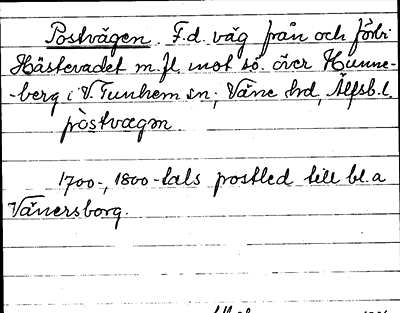 Postvägen. F.d. väg från och förbi
Hästevadet m.fl. mot sö. över Hunne-
-berg i V. Tunhem sn; Väne hd, Älfsb. l.
pòstvægɷn.
1700-, 1800-tals postled till bl.a
Vänersborg.